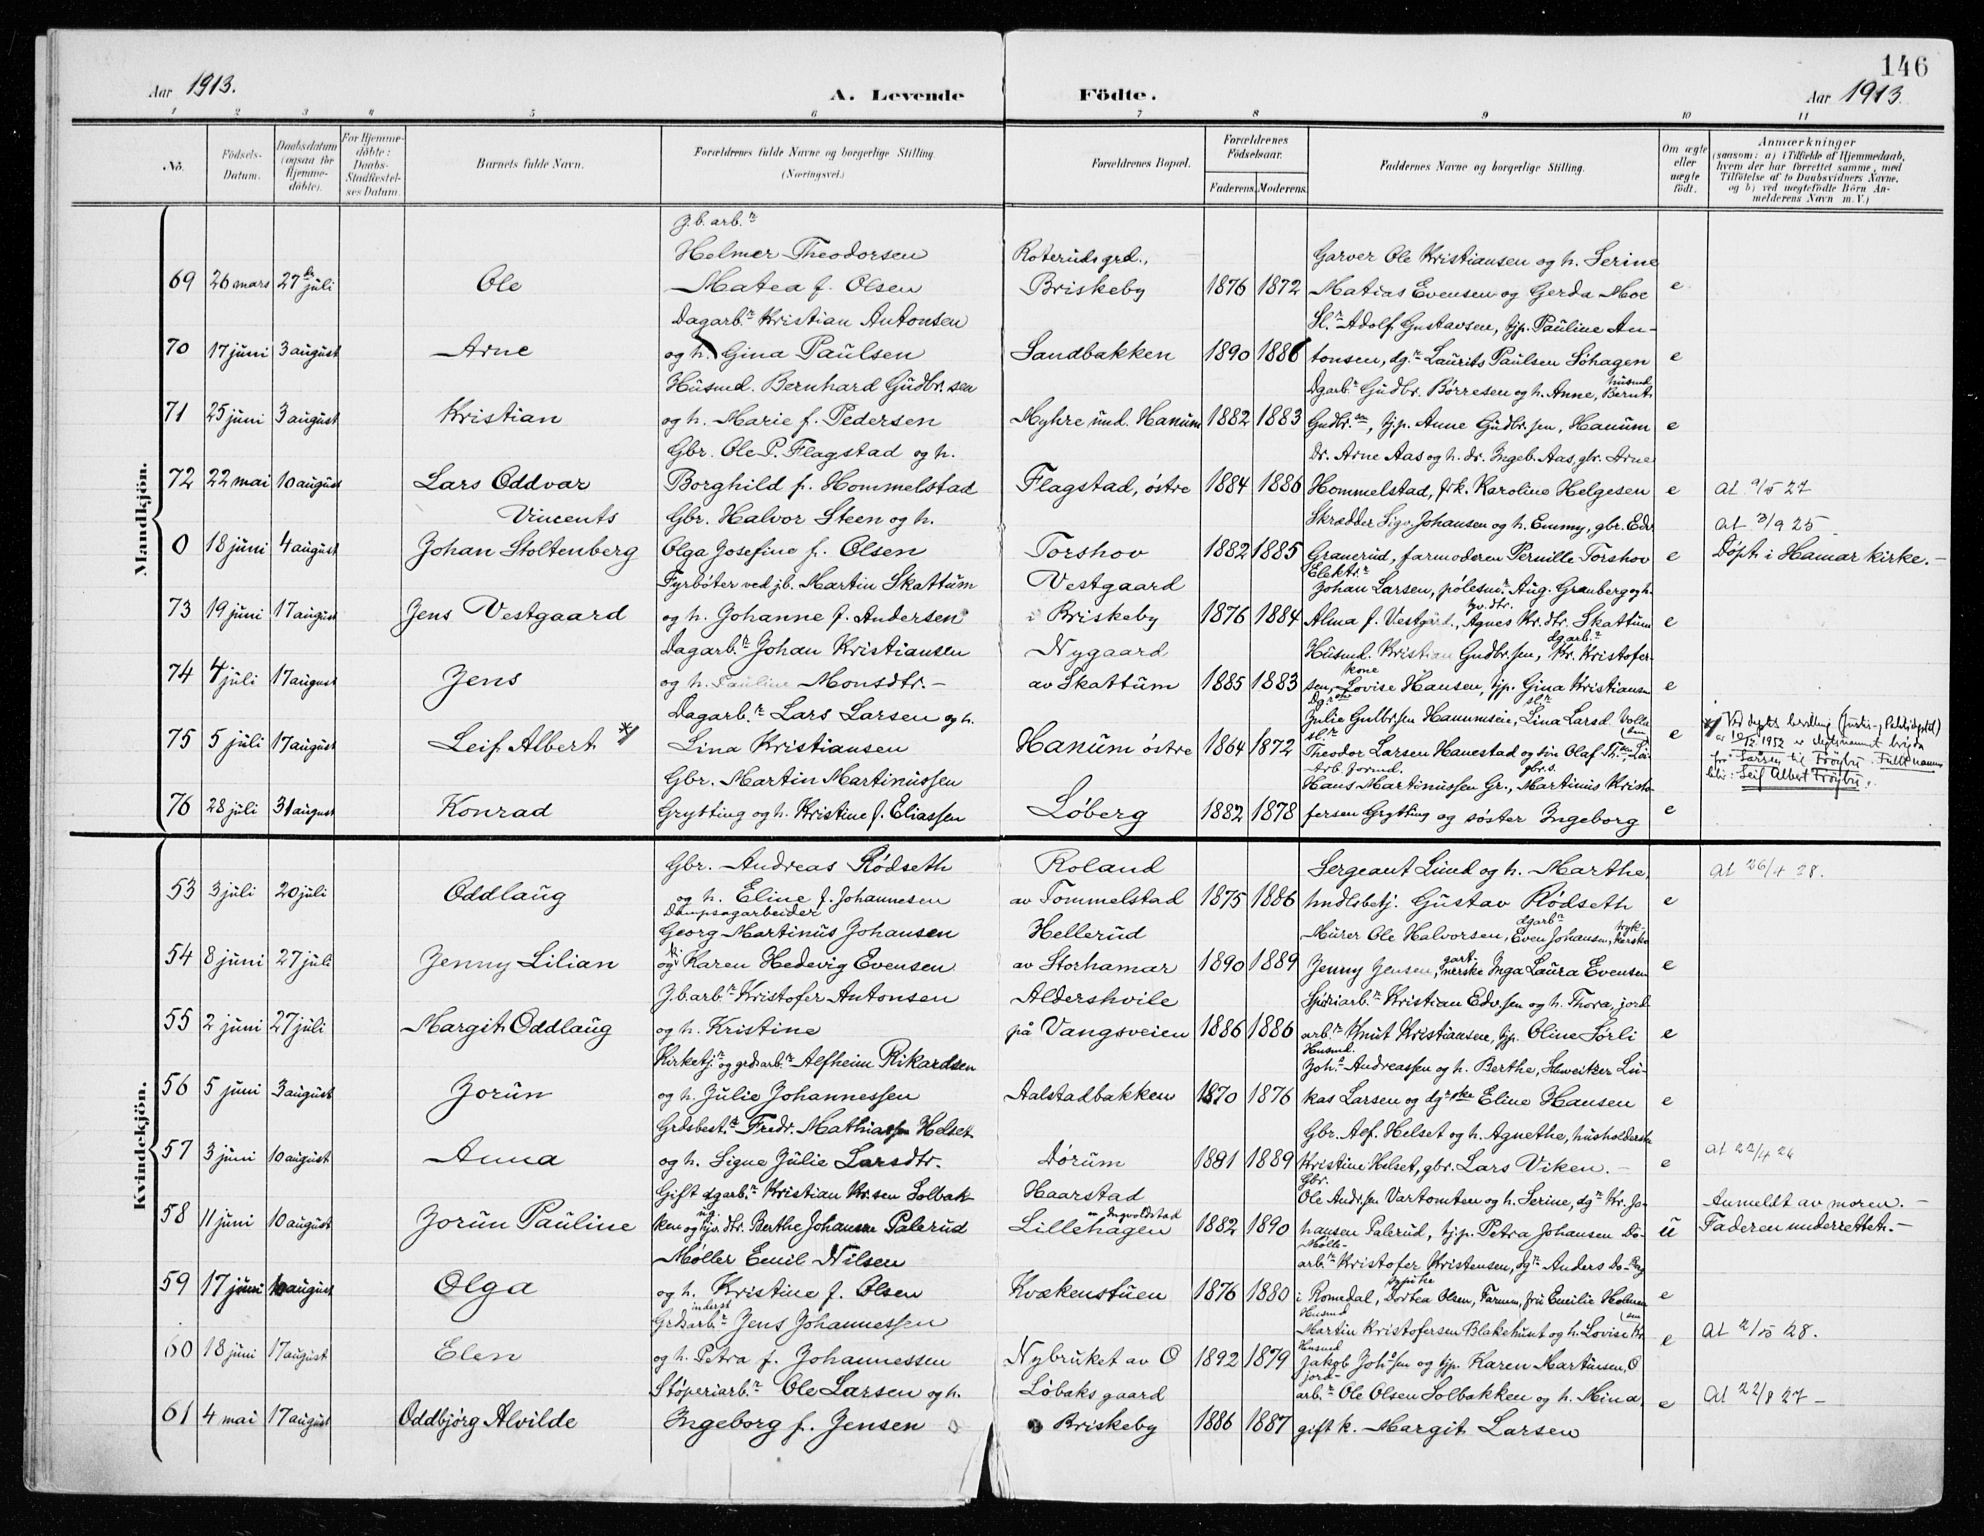 146
Aar 1913.
A. Levende Födte.
Aar 1913.
1 2 3 4 5 6 7 8 9 10 11
No.
Födsels-Datum.
Daabsdatum (ogsaa for Hjemme-döbte).
For Hjemme-döbte: Daabs-Stadfæstelses Datum.
Barnets fulde Navn.
Forældrenes fulde Navne og borgerlige Stilling.
(Næringsvei.)
Forældrenes Bopæl.
Forældrenes Födselsaar.
Faderens. Moderens.
Faddernes Navne og borgerlige Stilling.
Om ægte eller uægte födt.
Anmærkninger
(saasom: a) i Tilfælde af Hjemmedaab,
hvem der har forrettet samme, med
Tilföielse af to Daabsvidners Navne,
og b) ved uægtefödte Börn An-
melderens Navn m. V.)
Mandkjön.
J.b. arb.r
Helmer Theodorsen Roterudsgrd., Garver Ole Kristiansen og h. Serine
69 26 mars 27de juli Ole Matea f. Olsen Briskeby 1876 1872 Matias Evensen og Gerda Moe e
Dagarb.r Kristian Antonsen Sl.r Adolf Gustavsen, tjp. Pauline An-
70 17 juni 3 august Arne og h. Gina Paulsen Sandbakken 1890 1886 tonsen, dg.r Laurits Paulsen Söhagen e
Husmd. Bernhard Gudbr.sen Dgarb.r Gudbr. Børresen og h. Anne, husmd. Bernt
71 25 juni 3 august Kristian og h. Marie f. Pedersen Myhre und. Hanum 1882 1883 Gudbr.sen, tjp. Anne Gudbr.sen, Hanum e
Gbr. Ole P. Flagstad og h. Dr. Arne Aas og h. dr. Ingeb. Aas, gbr. Arne
72 22 mai 10 august Lars Oddvar Borghild f. Hommelstad Flagstad, østre 1884 1886 Hommelstad, frk. Karoline Helgesen e At 9/5 27
Vincents Gbr. Halvor Steen og h. Skrædder Sigv. Johansen og h. Emmy, gbr. Edv. At 3/9 25
0 18 juni 4 august Johan Stoltenberg Olga Josefine f. Olsen Torshov 1882 1885 Granerud, farmoderen Pernille Torshov e Døpt i Hamar kirke.-
Fyrbøter ved jb. Martin Skattum Vestgaard Elektr.r Johan Larsen, pølsem. Aug. Granberg og h.
73 19 juni 17 august Jens Vestgaard og h. Johanne f. Andersen Briskeby 1876 1884 Alma f. Vestgård, tjv. dtr. Agnes Kr. dtr. Skattum e
Dagarb.r Johan Kristiansen Nygaard Husmd. Kristian Gudbr.sen, dgarb.r Kr. Kristofer-
74 4 juli 17 august Jens og h. Pauline Monsdtr.- av Skattum 1885 1883 sen, kone Lovise Hansen, tjp. Gina Kristiansen e
Dagarb.r Lars Larsen og h. Julie Gulbr.sen Hanumseie, Lina Larsd.
75 5 juli 17 august Leif Albert *) Lina Kristiansen Hanum østre 1864 1872 Theodor Larsen Hanestad og søn Olaf e
*) Ved
1952 er
for Larsen til Frøyby. Fullt namn
blir: Leif Albert Frøyby.
Gbr. Martin Martinussen Hans Martinussen Gr., Martinus Kristo-
76 28 juli 31 august Konrad Grytting og h. Kristine f. Eliassen Løberg 1882 1878 fersen Grytting og søster Ingeborg e
Kvindekjön.
Gbr. Andreas Rødseth Roland Sergeant Lund og h. Marthe, At 26/4 28.
53 3 juli 20 juli Oddlaug og h. Eline f. Johannesen av Tommelstad 1875 1886 hndlsbetj. Gustav Rødseth e
Dampsagarbeider
Georg Martinus Johansen Hellerud Murer Ole Halvorsen, dgarb.r Even Johansen,
54 8 juni 27 juli Jenny Lilian og Karen Hedevig Evensen av Storhamar 1890 1889 Jenny Jensen, Inga Laura Evensen e
J.b. arb.r Kristofer Antonsen Aldershvile Kristian Edv.sen og h. Thora, jord-
55 2 juni 27 juli Margit Oddlaug og h. Kristine på Vangsveien 1886 1886 arb.r Knut Kristiansen, tjp. Oline Sørli e
Kirketj. og grdsarb.r Alfheim Rikardsen Husmd. Joh.s Andreassen og h. Berthe, Sveitser Lu-
56 5 juni 3 august Jorun og h. Julie Johannessen Aalstadbakken 1870 1876 kas Larsen og dgrske Eline Hansen e
Grdsbest.r Fredr. Mathiassen Helset Gbr. Alf. Helset og h. Agnethe, husholderske
57 3 juni 10 august Anna og h. Signe Julie Larsdtr. Dørum 1881 1889 Kristine Helset, gbr. Lars Viken.- e At 22/4 26
Gift dgarb.r Kristian Kr.sen Solbak- Haarstad Gbr. Ole Andr.sen Vartomten og h. Serine, dg.r Kr. Jo- Anmeldt av moren.-
58 11 juni 10 august Jorun Pauline ken og ug. tjv. dtr. Berthe Johansen Palerud Lillehagen 1882 1890 hansen Palerud, tjp. Petra Johansen Do- u Faderen underrettet.-
Møller Emil Nilsen Mølle-arb.r Kristofer Kristensen, dg.r Anders Do-
59 17 juni 10 august Olga og h. Kristine f. Olsen Kvækenstuen 1876 1880 i Romedal, Dortea Olsen, Farmen, fru Emilie Holmen e
inderst
Grdsarb.r Jens Johannessen Husmd Martin Kristofersen Blakehunt og h. Lovise At 2/5 28.
60 18 juni 17 august Elen og h. Petra f. Johannessen Nybruket av O 1892 1879 Husmd Jakob Joh.sen og tjp. Karen Martinsen, O e
Støperiarb.r Ole Larsen og h. Løbaks gaard jord-arb.r Ole Olsen Solbakken og h. Mina, At 22/8 27-
61 4 mai 17 august Oddbjørg Alvilde Ingeborg f. Jensen Briskeby 1886 1887 gift k. Margit Larsen e